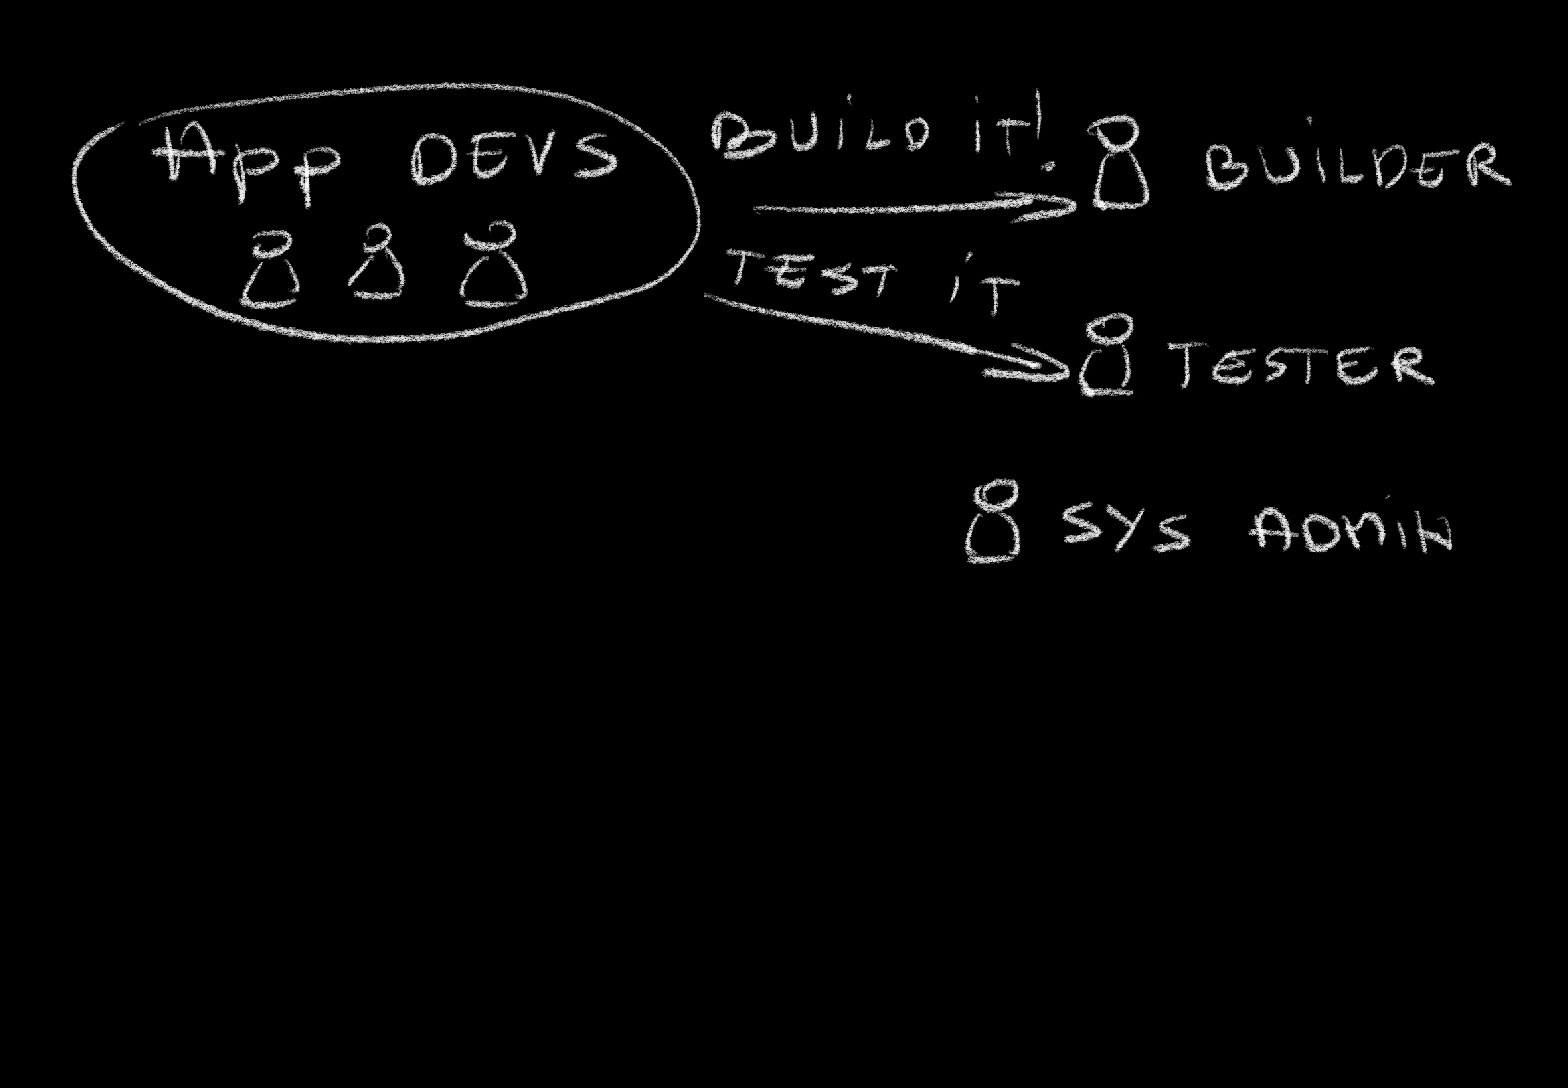 App DEVS
BUiLD iT!
BUiLDER
TEST iT
TESTER
SYS ADMiN